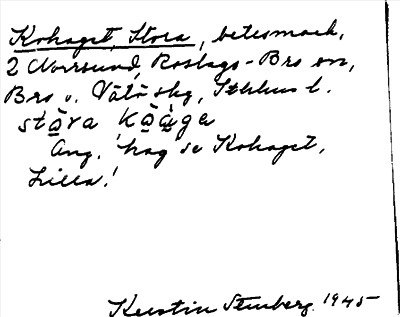 Kohaget, Stora, betesmark,
2 Norrsund, Roslags-Bro sn,
Bro o. Vätö skg, Sthlms l.
stɷ̀ra kɷ̀age
Ang. 'hag' se Kohaget,
Lilla!
Kerstin Stenberg 1945